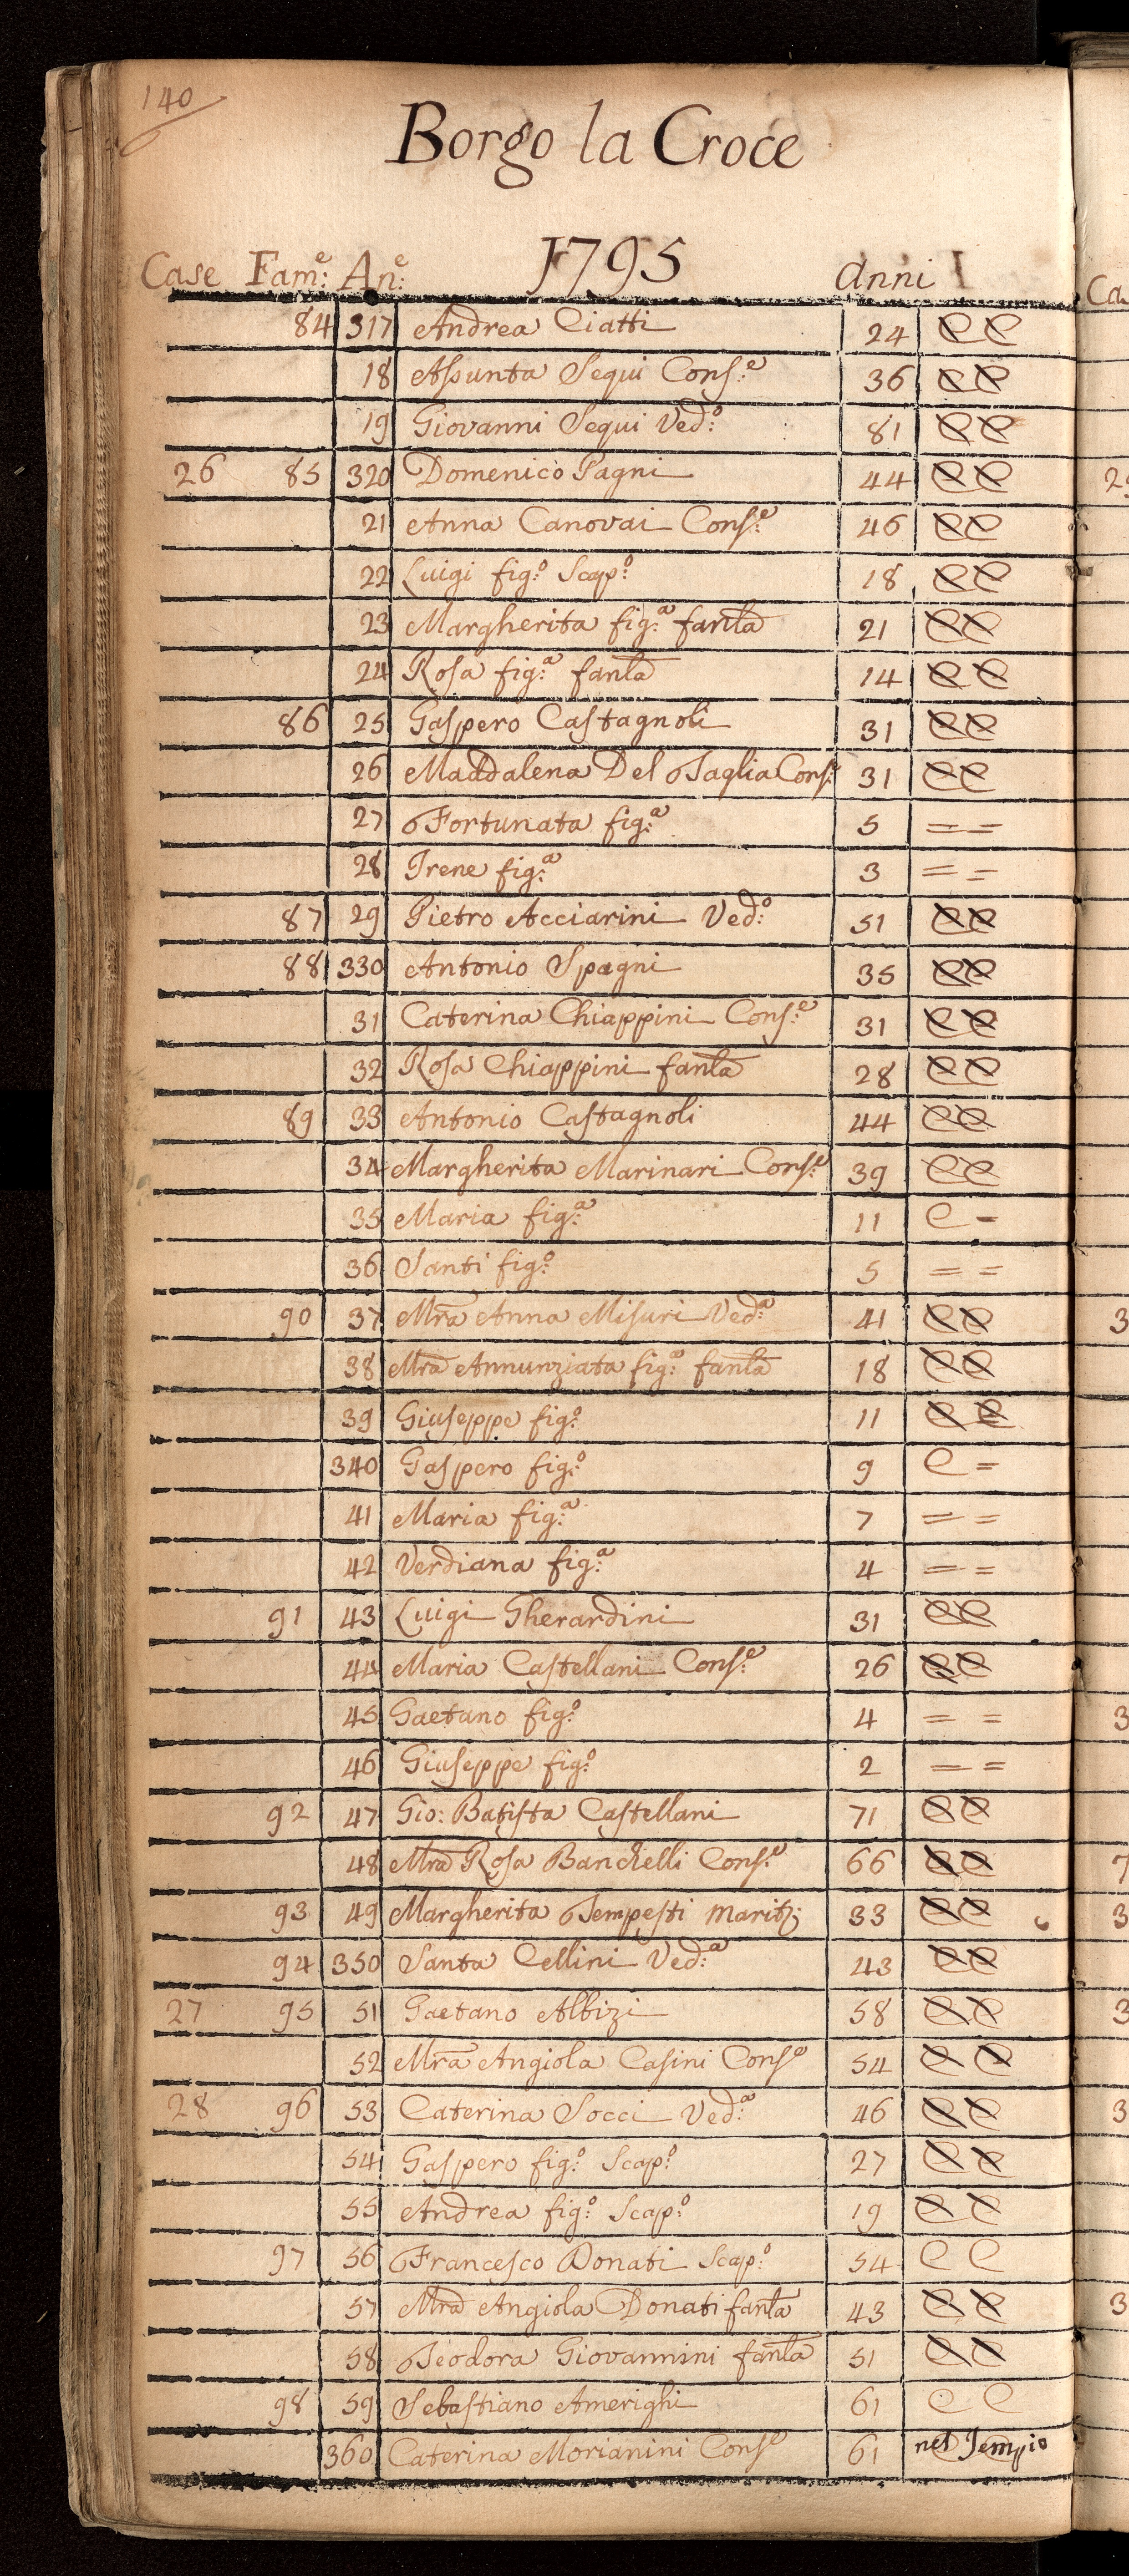 140
Borgo la Croce
Case Fam:e An:e 1795 Anni
84 317 Andrea Ciatti 24 C C
18 Assunta Segui Cons:e 36 C C
19 Giovanni Segui Ved:o 81 C C
26 85 320 Domenico Pagni 44 C C
21 Anna Canovai Cons:e 46 C C
22 Luigi fig:o Scap:o 18 C C
23 Margherita fig:a fanla 21 C C
24 Rosa fig:a fanla 14 C C
86 25 Gaspero Castagnoli 31 C C
26 Maddalena Del Taglia Cons:e 31 C C
27 Fortunata fig:a 5 = =
28 Irene fig:a 3 = =
87 29 Pietro Acciarini Ved:o 51 C C
88 330 Antonio Spagni 35 C C
31 Caterina Chiappini Cons:e 31 C C
32 Rosa Chiappini fanla 28 C C
89 33 Antonio Castagnoli 44 C C
34 Margherita Marinari Cons:e 39 C C
35 Maria fig:a 11 C =
36 Santi fig:o 5 = =
90 37 Mra Anna Misuri Ved:a 41 C C
38 Mra Annunziata fig:a fanla 18 C C
39 Giuseppe fig:o 11 C C
340 Gaspero fig:o 9 C =
41 Maria fig:a 7 = =
42 Verdiana fig:a 4 = =
91 43 Luigi Gherardini 31 C C
44 Maria Castellani Cons:e 26 C C
45 Gaetano fig:o 4 = =
46 Giuseppe fig:o 2 = =
92 47 Gio: Batista Castellani 71 C C
48 Mra Rosa Banchelli Cons:e 66 C C
93 49 Margherita Tempesti Marit: 33 C C
94 350 Santa Cellini Ved:a 43 C C
27 95 51 Gaetano Albizi 58 C C
52 Mra Angiola Casini Conse 54 C C
28 96 53 Caterina Socci Ved:a 46 C C
54 Gaspero fig:o Scap:o 27 C C
55 Andrea fig:o Scap:o 19 C C
97 56 Francesco Donati Scap:o 54 C C
57 Mra Angiola Donati fanla 43 C C
58 Teodora Giovannini fanla 51 C C
98 59 Sebastiano Amerighi 61 C C
360 Caterina Morianini Conse 61 nel Tempio